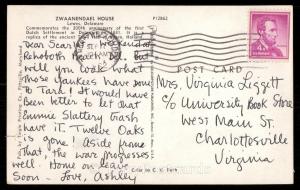 ZWAANENDAEL HOUSE
Lewes, Delaware
P12862
Commemorates the 300th anniversary of the first
Dutch Settlement in Delaware
replica of the ancient
POST CARD
Dear Scarlett,
Rehoboth Beach but
will you look what
those Yankees have done
to Tara! It would have
been better to let that
Emmie Slattery trash
have it. Twelve Oaks
is gone. Aside from
that, the war progresses
well. Home on leave
soon. Love, Ashley
Mrs. Virginia Leggett
c/o University Book Store
West Main St.
Charlottesville
Virginia
Color by